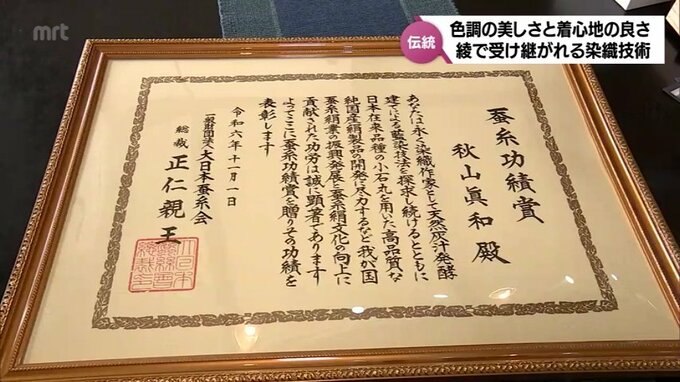 mrt
伝統
色調の美しさと着心地の良さ
綾で受け継がれる染織技術
蚕糸功績賞
秋山眞和殿
あなたは永く染織作家として天然灰汁発酵
建てによる藍染技法を探求し続けるとともに
日本在来品種の小石丸を用いた高品質な
純国産絹製品の開発に尽力するなど我が国
蚕糸絹業の振興発展と蚕糸絹文化の向上に
貢献された功労は誠に顕著であります
よってここに蚕糸功績賞を贈りその功績を
表彰します
令和六年十一月一日
一般財団法人大日本蚕糸会
総裁 正仁親王